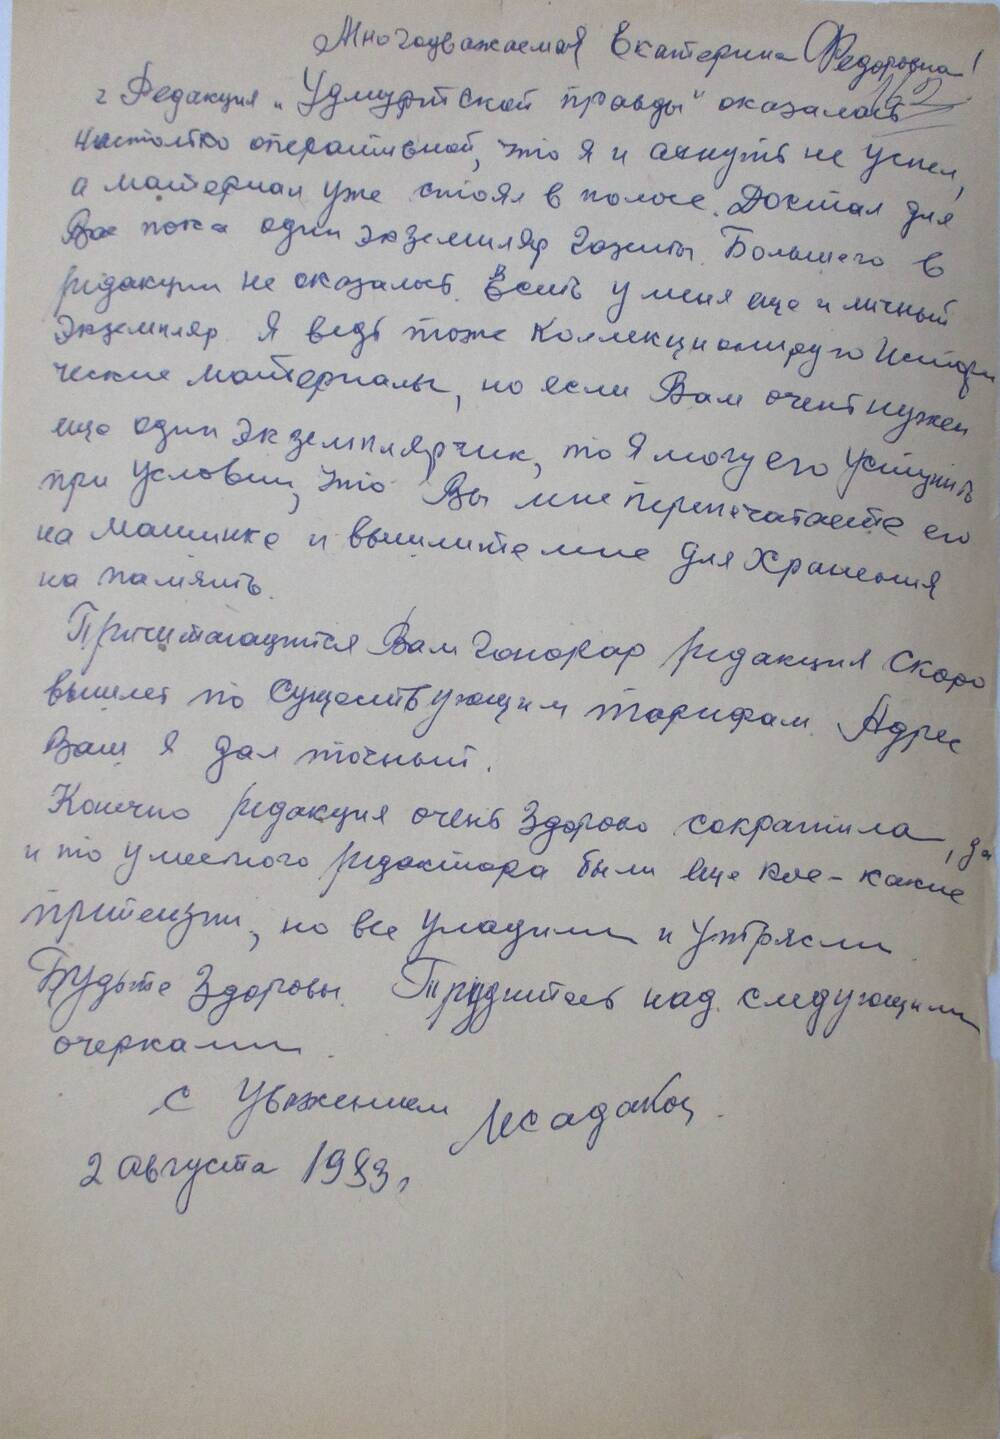 Многоуважаемая Екатерина Федоровна!
Редакция „Удмуртской правды" оказалась
настолько оперативной, что я и ахнуть не успел,
а материал уже стоял в полосе. Достал для
Вас пока один экземпляр газеты. Большего в
редакции не оказалось. Есть у меня еще и личный
экземпляр. Я ведь тоже коллекционирую истори
ческие материалы, но если Вам очень нужен
еще один экземплярчик, то я могу его уступить
при условии, что Вы мне перепечатаете его
на машинке и вышлите мне для хранения
на память.
Причитающийся Вам гонорар редакция скоро
вышлет по существующим тарифам. Адрес
Ваш я дал точный.
Конечно редакция очень здорово сократила, да
и то у местного редактора были еще кое-какие
притензии, но все уладили и утрясли
Будьте здоровы. Трудитесь над следующими
очерками.
С уважением
2 августа 1983 г.